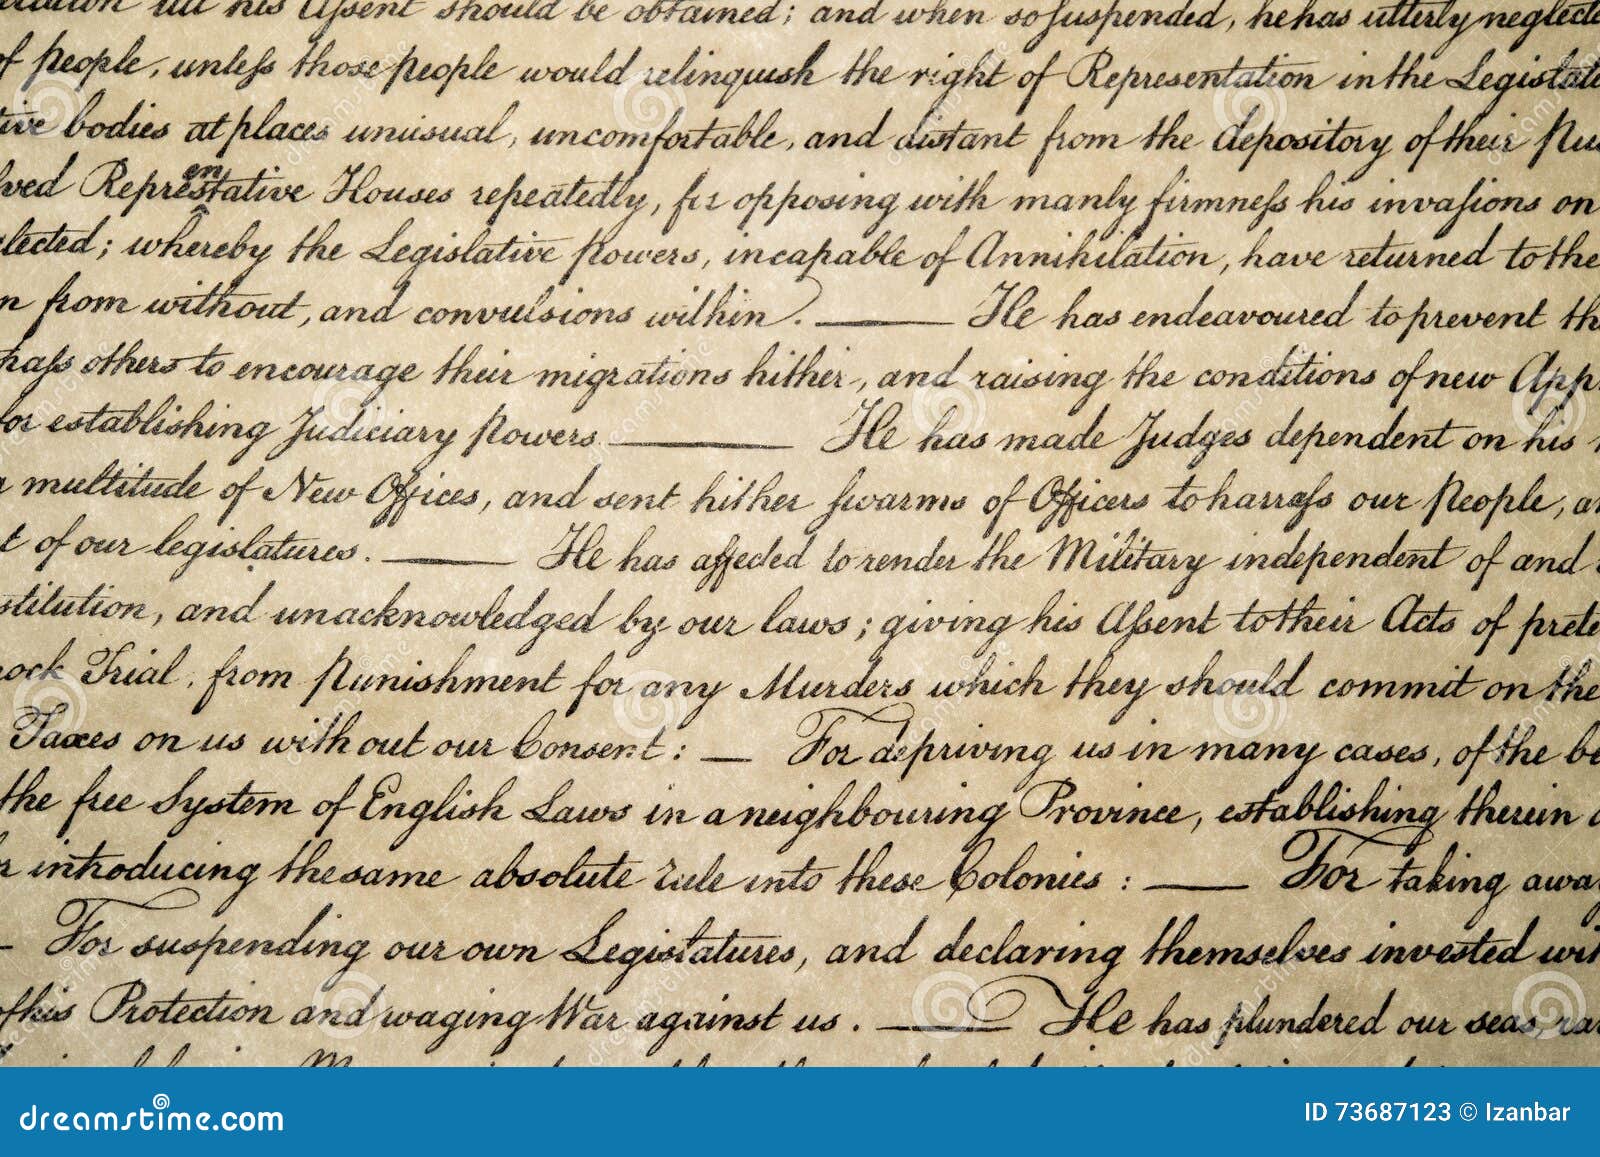 till his Assent should be obtained; and when so suspended, he has utterly neglecte
of people, unless those people would relinquish the right of Representation in the Legislat
tive bodies at places unusual, uncomfortable, and distant from the depository of their Pu
lved Representative Houses repeatedly, for opposing with manly firmness his invasions on
lected; whereby the Legislative powers, incapable of Annihilation, have returned to the
n from without, and convulsions within. ——— He has endeavoured to prevent th
pass others to encourage their migrations hither, and raising the conditions of new App
for establishing Judiciary powers. ——— He has made Judges dependent on his
a multitude of New Offices, and sent hither swarms of Officers to harrass our people, a
t of our legislatures. ——— He has affected to render the Military independent of and
stitution, and unacknowledged by our laws; giving his Assent to their Acts of prete
ock Trial, from punishment for any Murders which they should commit on the
Taxes on us without our Consent: — For depriving us in many cases, of the be
the free System of English Laws in a neighbouring Province, establishing therein a
r introducing the same absolute rule into these Colonies: —— For taking awa
– For suspending our own Legislatures, and declaring themselves invested wit
of his Protection and waging War against us. ——— He has plundered our seas, ra
dreamstime.com
ID 73687123 © Izanbar